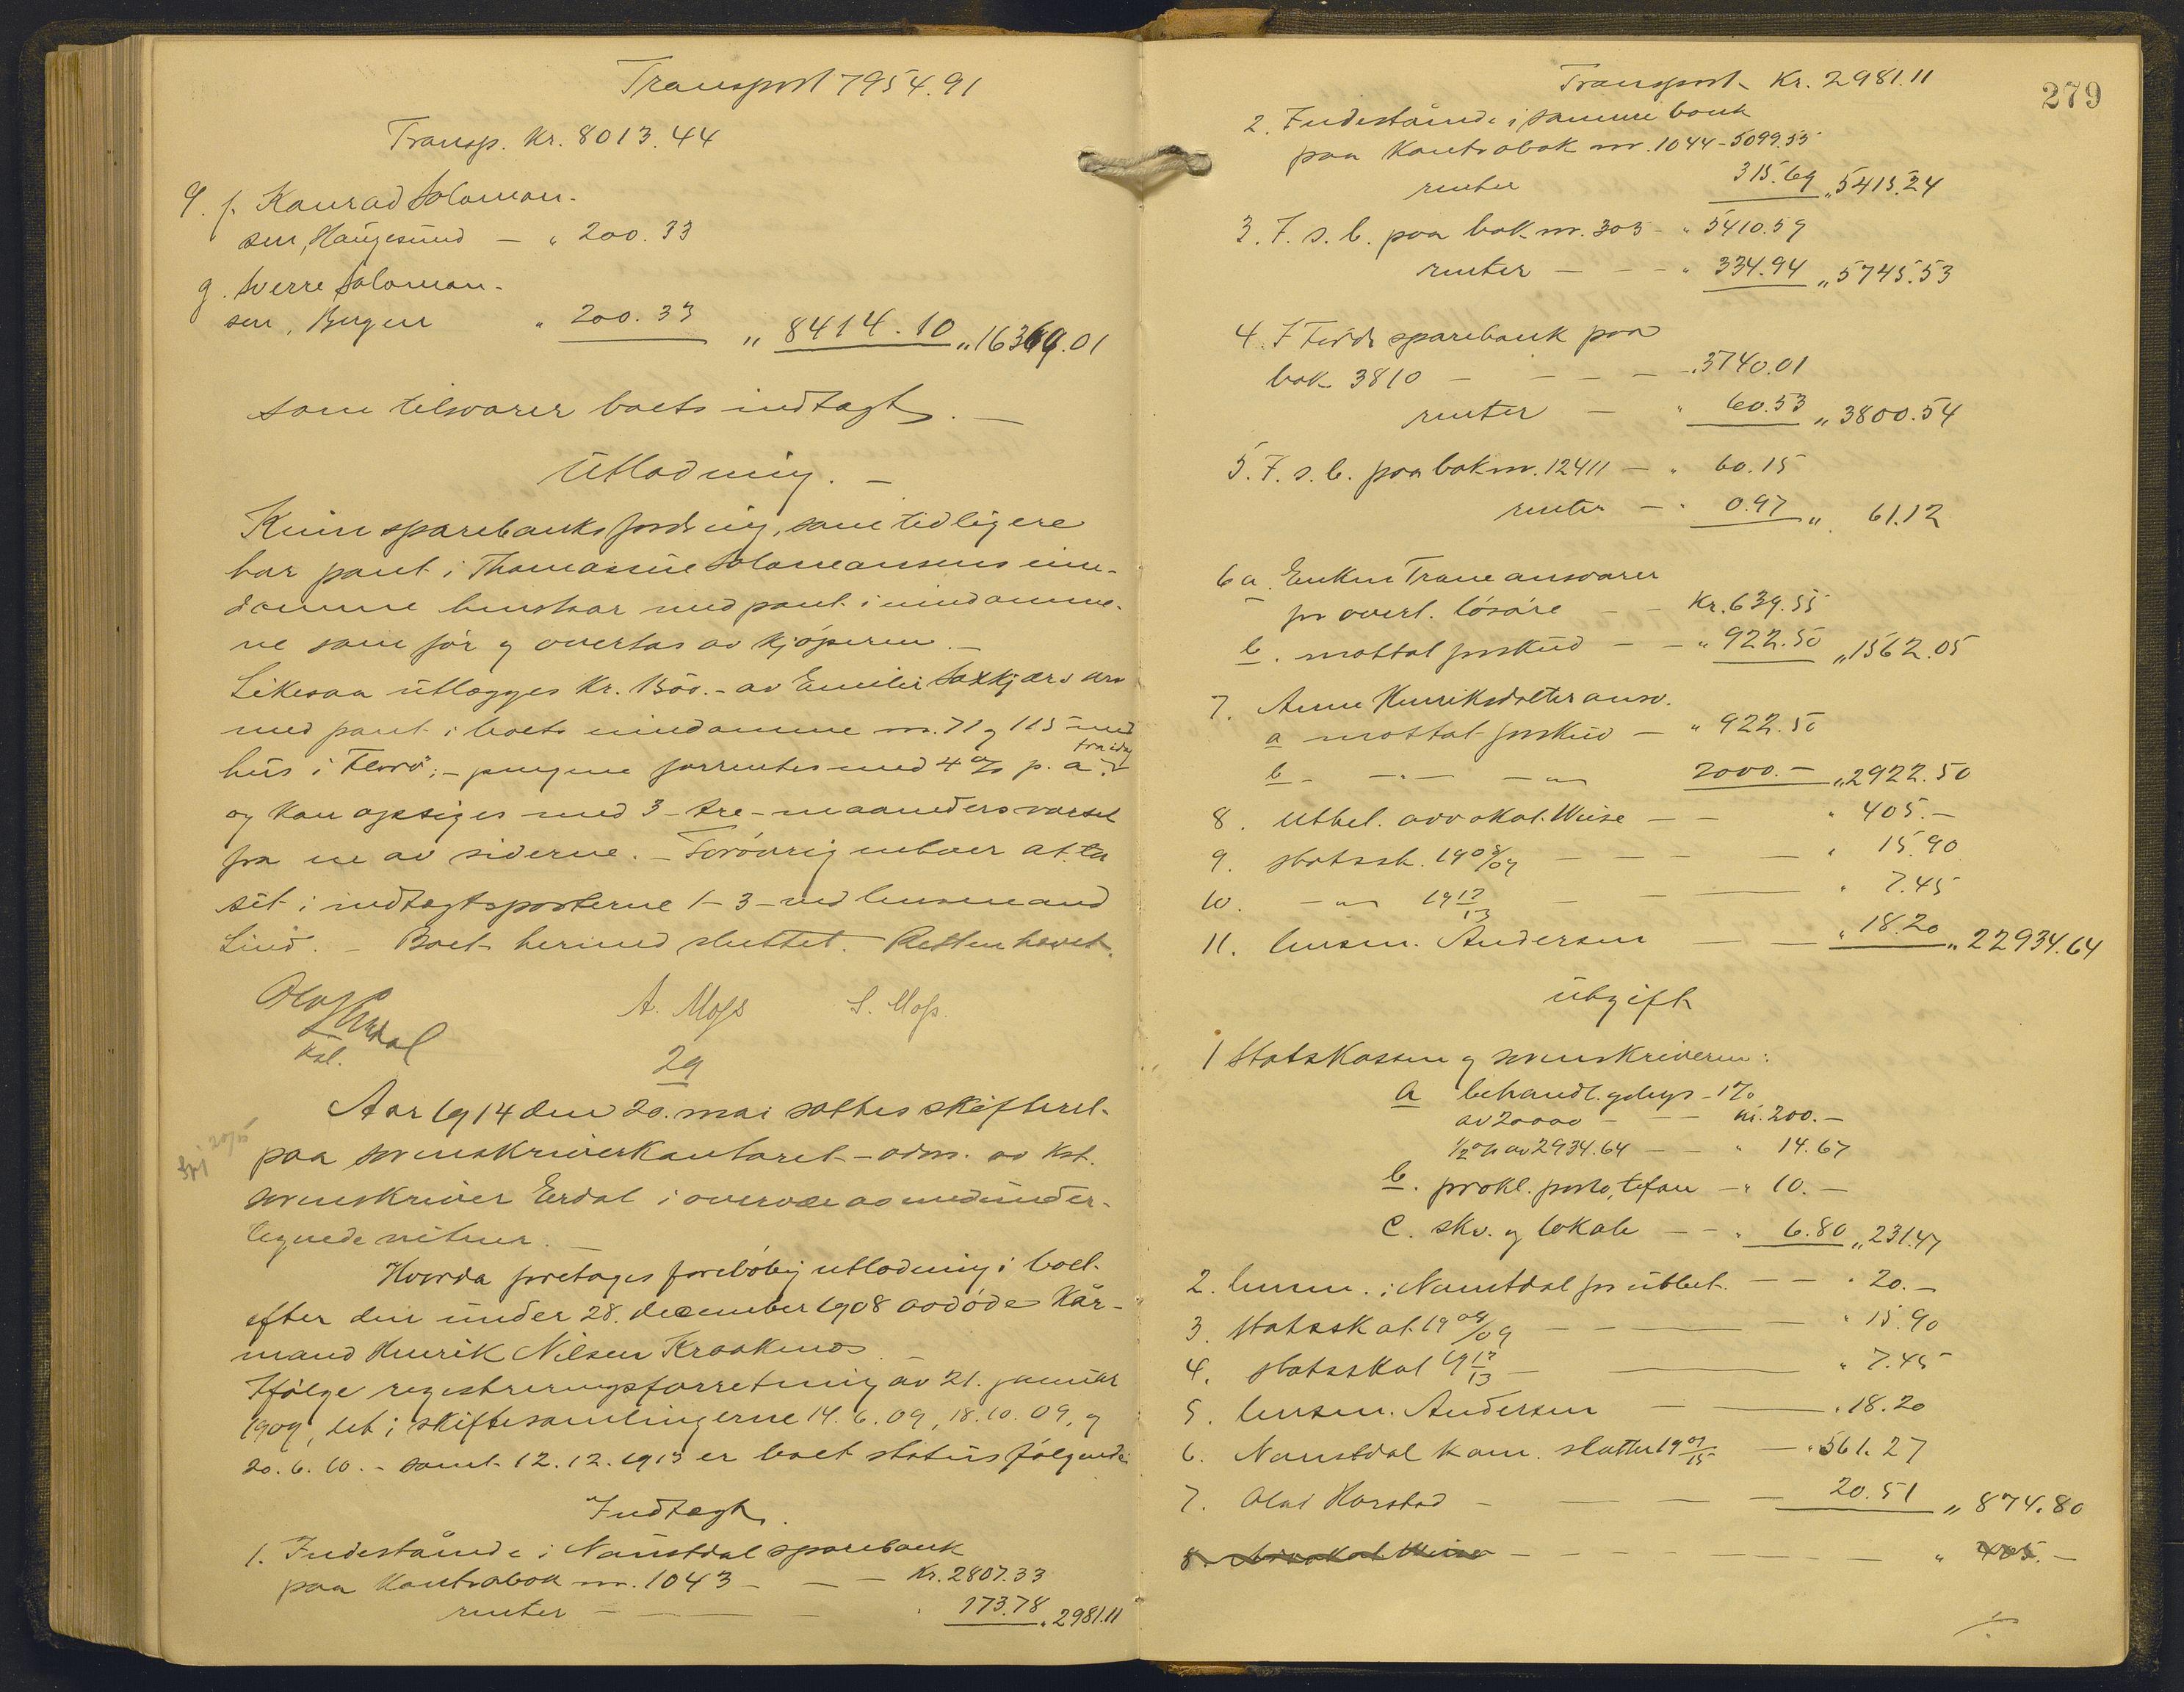 Transport 7954.91
Transp. Kr. 8013.44
9. f. Konrad Saloman-
sen, Haugesund — " 200.33
g. Sverre Saloman-
sen, Bergen " 200.33 " 8414.10 " 16369.01
som tilsvarer boets indtægt. —
Utlodning. —
Kinn sparebanks fordring, som tidligere
har pant i Thomasine Salomansens ein-
domme henstaar med pant i eindomme-
ne som før og overtas av kjøperen. —
Likesaa utlægges Kr. 1500.- av Emilie Saxkjærs arv
med pant i boets eindomme nr. 71 og 115 med
hus i Florø; - pengene forrentes med 4 % p. a. fra idag
og kan opsiges med 3 - tre - maaneders varsel
fra en av siderne. - Forøvrig beroer at ta
sit i indtægtsposterne 1-3 ved lensmand
Lind. — Boet hermed sluttet. Retten hævet.
Olaf Erdal
kst.
A. Moss S. Moss.
29
Aar 1914 den 20. mai sattes skifteret
paa sorenskriverkontoret - adm. av kst.
sorenskriver Erdal i overvær av medunder-
tegnede vitner. —
Hvorda foretages foreløbig utlodning i boet
efter den under 28. december 1908 avdøde Kår-
mand Henrik Nilsen Kraakenes. —
Ifølge registreringsforretning av 21. januar
1909, let i skiftesamlingerne 14.6.09, 18.10.09, og
20.6.10. - samt 12.12.1913 er boets status følgende:
Indtægt.
1. Indestående i Naustdal sparebank
paa Kontrabok nr. 1043 — — — Kr. 2807.33
renter — — — " 173.78 " 2981.11
279
Transport Kr. 2981.11
2. Indestående i samme bank
paa Kontrabok nr. 1044 - 5099.55
renter 315.69 " 5415.24
3. I. s. b. paa bok nr. 303 - " 5410.59
renter — — — " 334.94 " 5745.53
4. I Førde sparebank paa
bok 3810 — — — — " 3740.01
renter — " 60.53 " 3800.54
5. I. s. b. paa bok nr. 12411 — " 60.15
renter — " 0.97 " 61.12
6 a. Enken Trane ansvarer
for overt. løsøre — — Kr. 639.55
b. mottat forskud — — " 922.50 " 1562.05
7. Anne Henriksdatter ansv.
a mottat forskud — " 922.50
b — " — — " — 2000.— " 2922.50
8. Utbet. advokat Wiese — — " 405.—
9. statssk. 1908/09 — — — — " 15.90
10. — " — 1912/13 — — — " 7.45
11. lensm. Andersen — — " 18.20 " 22934.64
Utgift
1 Statskassen og sorenskriveren:
a behandl. gebyr - 1%
av 20000 — — — kr. 200.—
½ % av 2934.64 — — " 14.67
b. prokl. porto, telefon — " 10.—
c. skv. og lokale — — " 6.80 " 231.47
2. lensm. i Naustdal for utbet. — — " 20.—
3. Statsskat 1908/09 — — — " 15.90
4. statsskat 1912/13 — — " 7.45
5. lensm. Andersen — — " 18.20
6. Naustdal kom. skatter — " 561.27
7. Olai Horstad — — — — 20.51 " 874.80
8. Advokat Wiese — — — — — — " 405.—